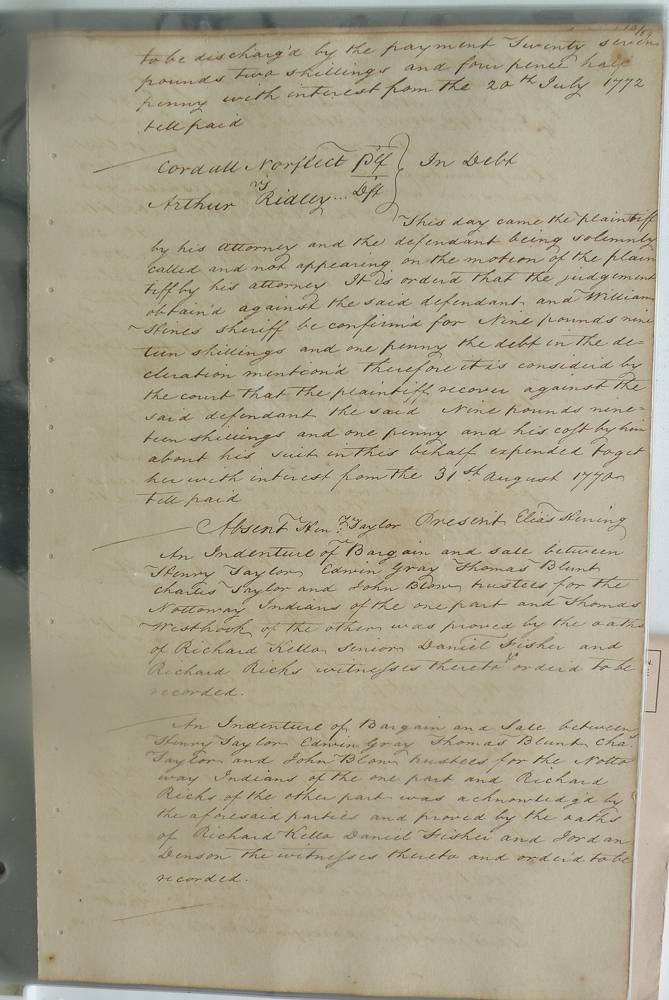 to be discharg'd by the payment Twenty seven
pounds two shillings and four pence half
penny with interest from the 20th July 1772
till paid
Cordall Norfleet Plf } In Debt
vs
Arthur Ridley... Dft
This day came the plaintiff
by his attorney and the defendant being solemnly
called and not appearing on the motion of the plain
tiff by his attorney It is orderd that the judgement
obtain'd against the said defendant and William
Hines sheriff be confirm'd for Nine pounds nine
teen shillings and one penny the debt in the de=
cleration mention'd therefore it is considerd by
the court that the plaintiff recover against the
said defendant the said Nine pounds nine=
teen shillings and one penny and his cost by him
about his suit in this behalf expended toget
her with interest from the 31st August 1770
till paid
Absent Hen.y Taylor Present Elias Hening
An Indenture of Bargain and sale between
Henry Taylor Edwin Gray Thomas Blunt
Charles Taylor and John Blow trustees for the
Nottoway Indians of the one part and Thomas
Westbrook of the other was proved by the oaths
of Richard Kello senior Daniel Fisher and
Richard Ricks witnesses thereto & order'd to be
recorded.
An Indenture of Bargain and Sale between
Henry Taylor Edwin Gray Thomas Blunt Chas
Taylor and John Blow trustees for the Notto
way Indians of the one part and Richard
Ricks of the other part was acknowledg'd by
the aforesaid parties and proved by the oaths
of Richard Kello Daniel Fisher and Jordan
Denson the witnesses thereto and order'd to be
recorded.